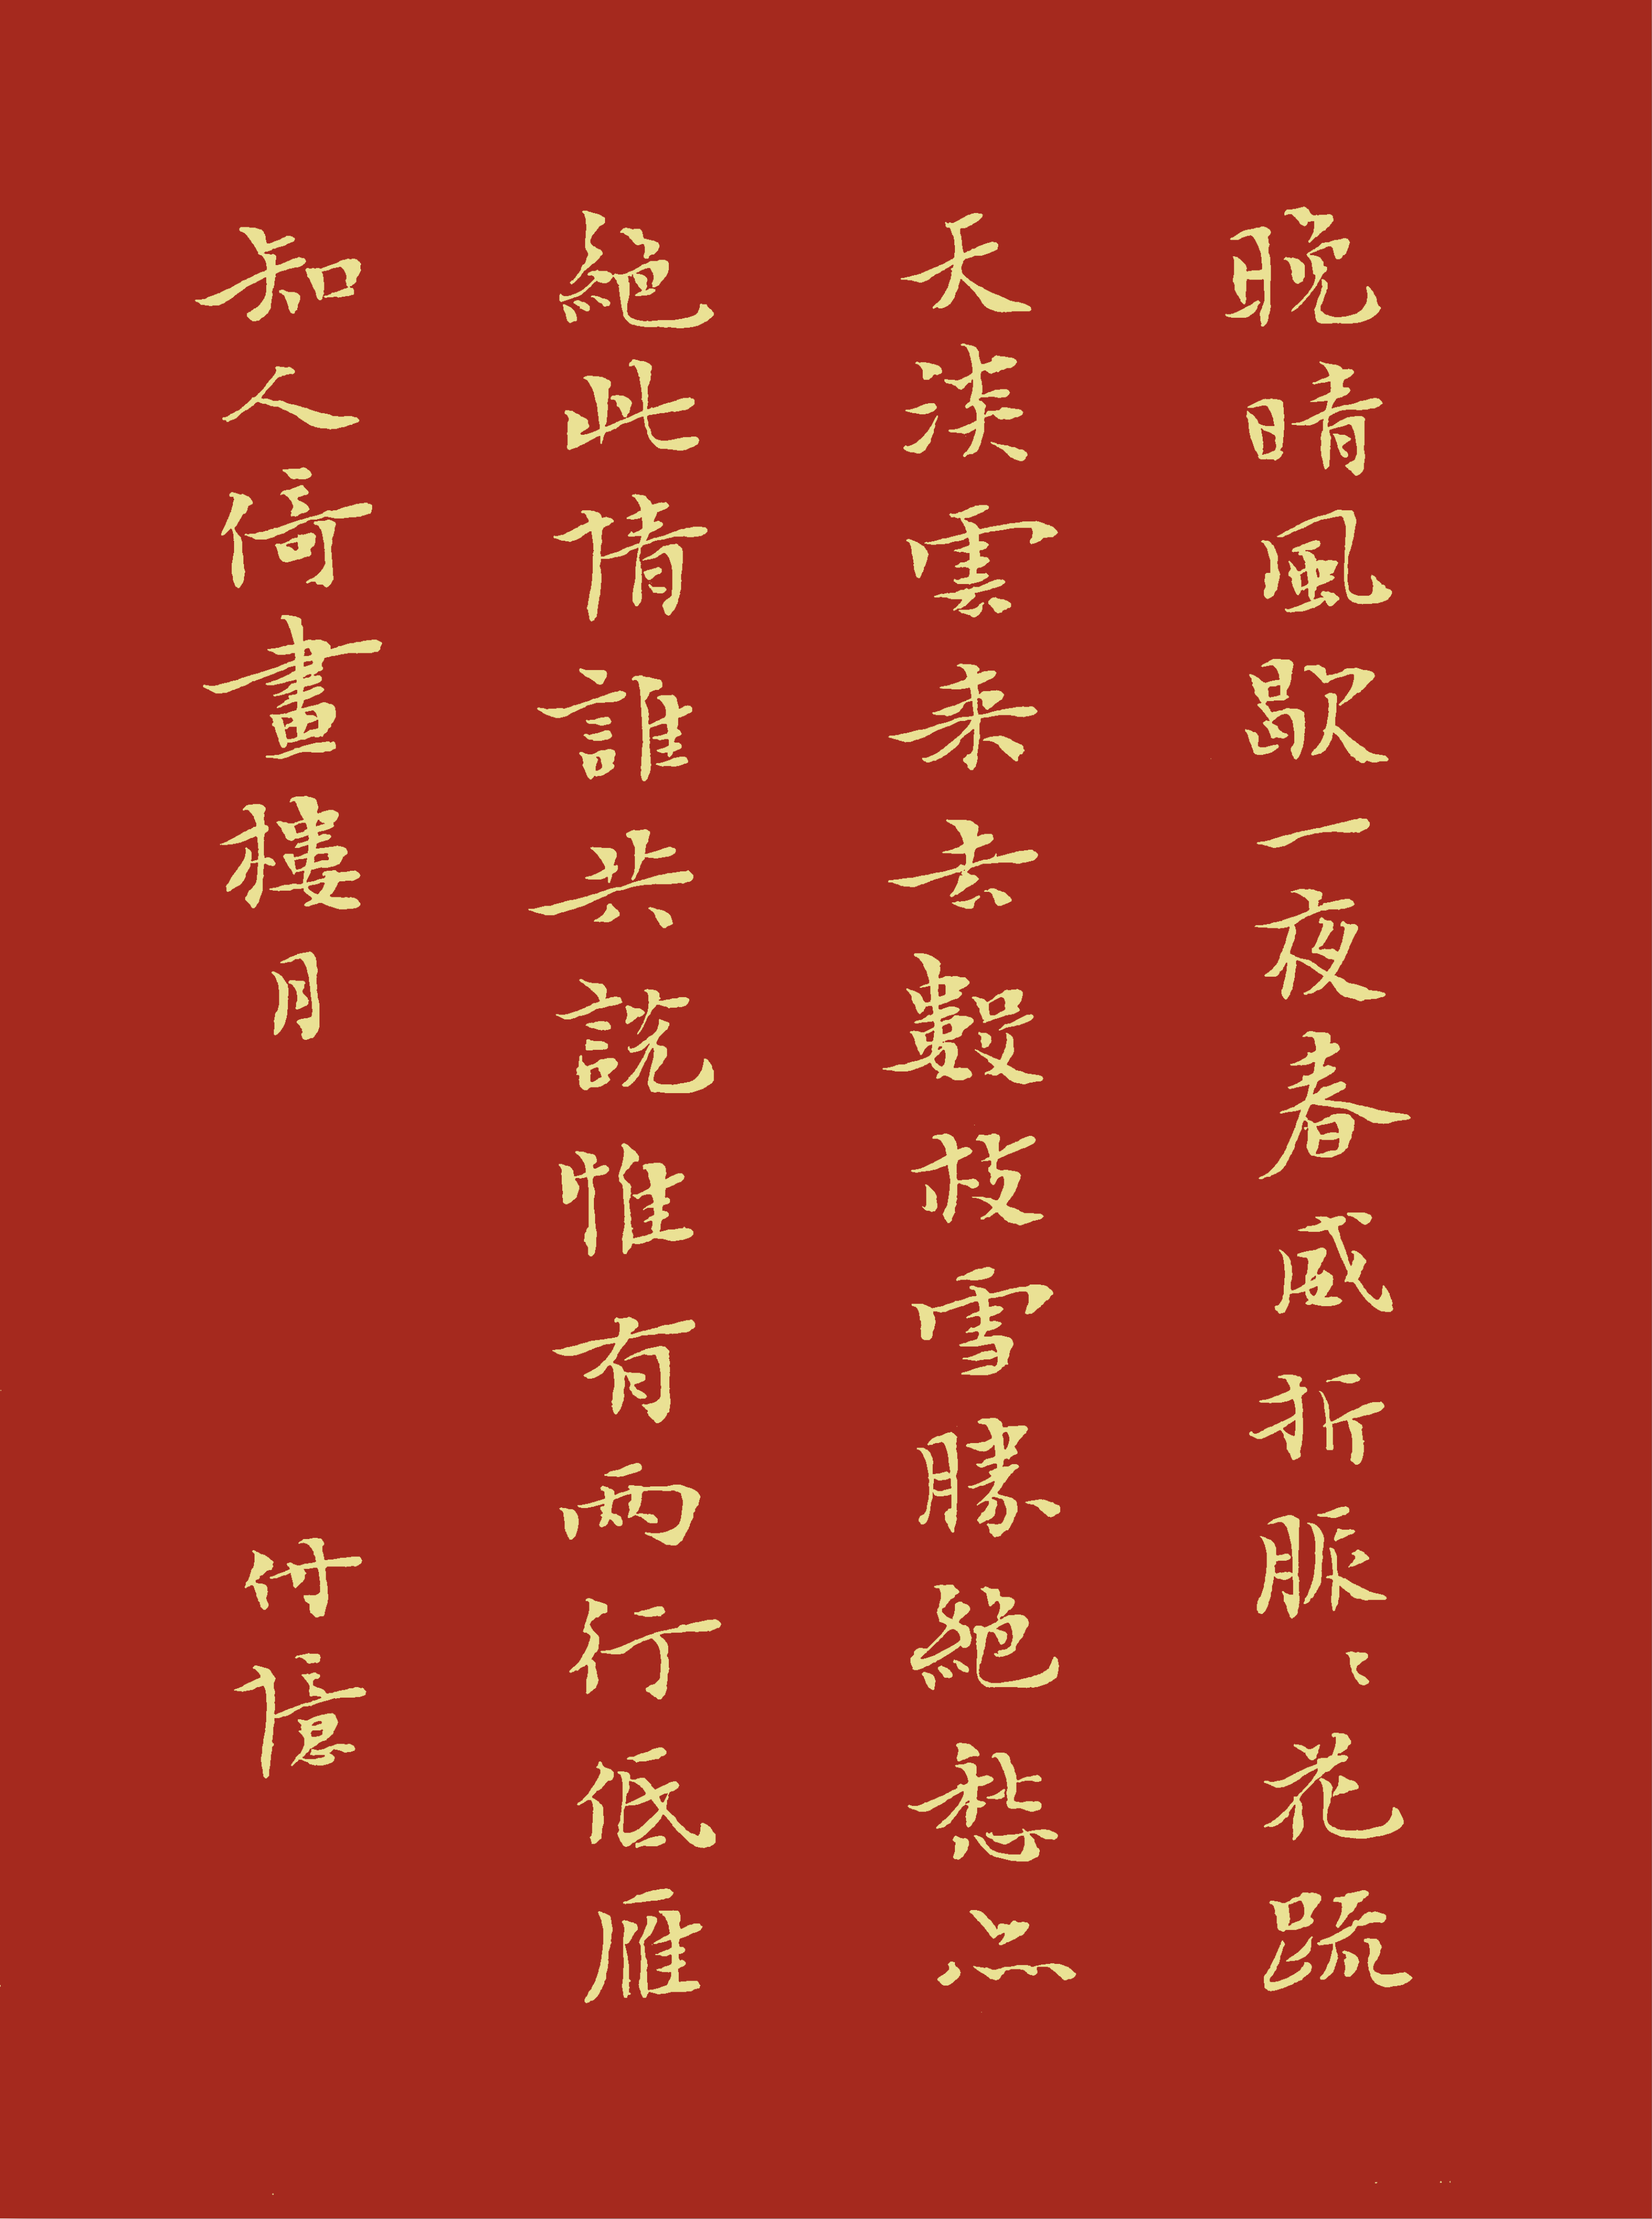 晚晴風歇一夜春威折脈〻花疏
天淡雲来去數枝雪勝絕愁亦
絕此情誰共説惟有兩行低雁
知人倚畫樓月
竹